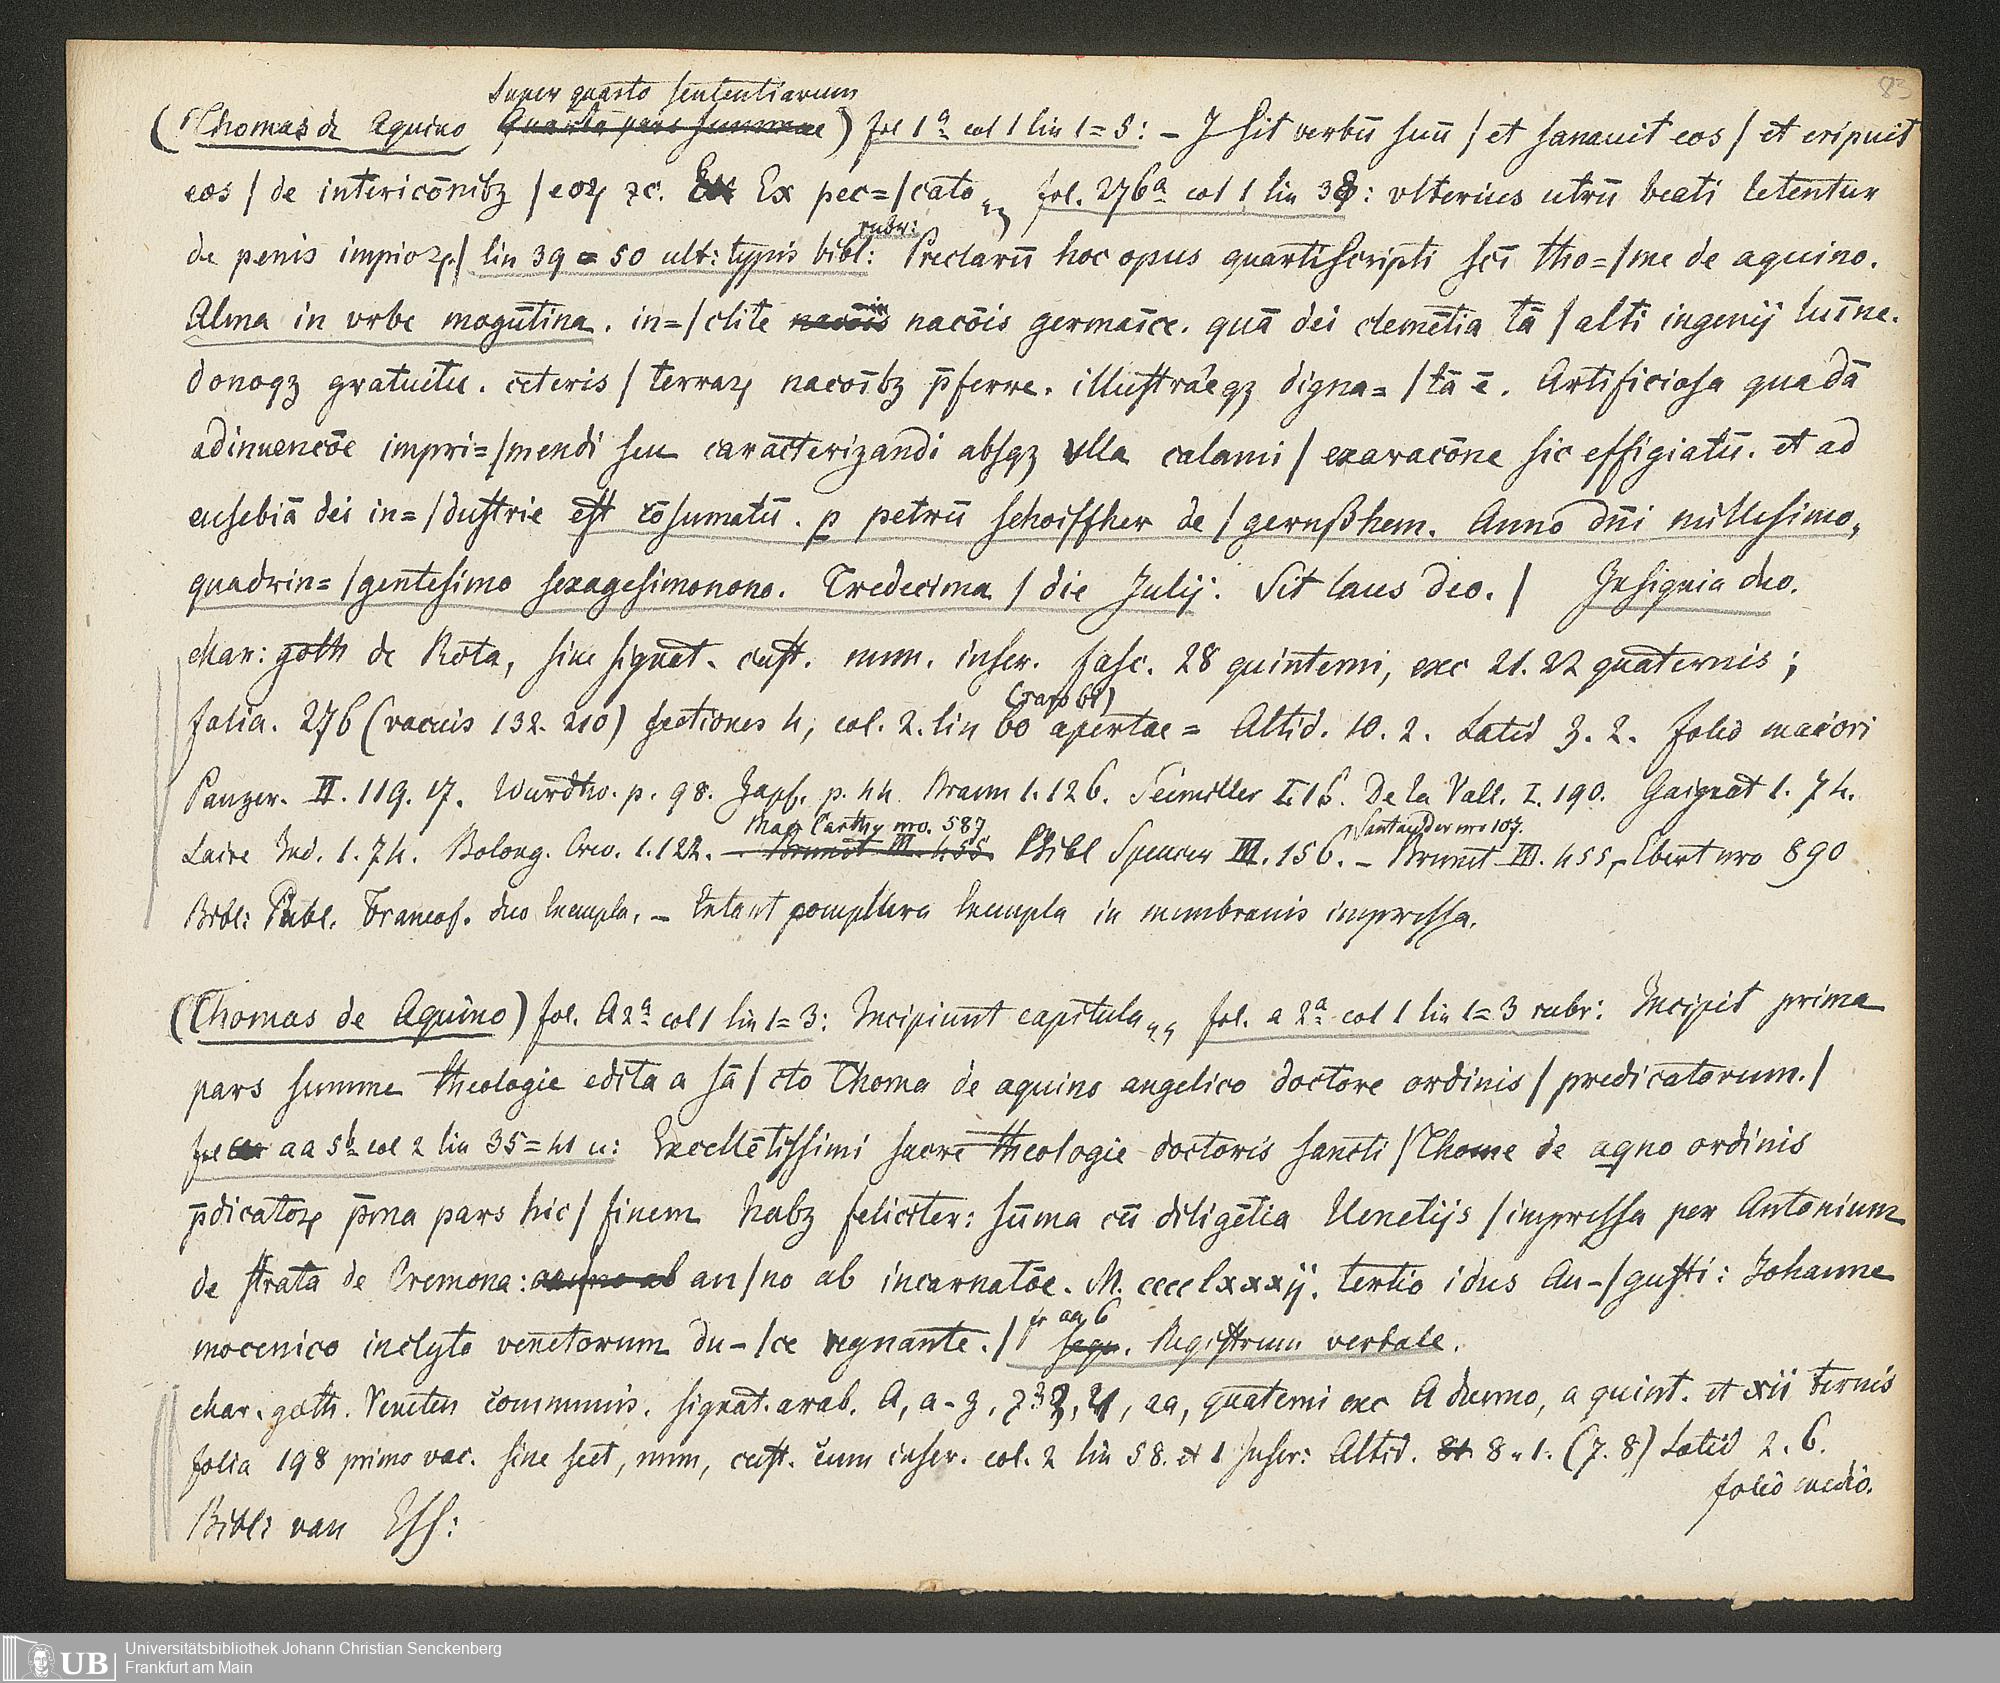 83
super quarto sententiarum
(Thomas de Aquino ~~Quarta pars summae~~) fol 1a col 1 lin 1=5: – Sit verbū suū / et sanauit eos / et eripuit
eos / de intericōnibꝫ / eoꝝ ꝛc. Ex pec=/cato „ fol. 276a col 1 lin 38: vlterius utrū beati letentur
rubr:
de penis impioꝝ./ lin 39 = 50 ult: typis bibl: Preclarū hoc opus quartiscripti scī tho=/me de aquino.
Alma in vrbe mogūtina. in=/clite nacōis germaīce. quā dei clemētia tā / alti ingenij luīne.
donoqꝫ gratuitu. ceteris / terraꝝ nacoībꝫ p̄ferre. illustrāeqꝫ digna=/tā ē. Artificiosa quadā
adinuencōe impri=/mendi seu caracterizandi absqꝫ vlla calami / exaracōne sic effigiatū. et ad
eusebiā dei in=/dustrie est cōsumatū. p petrū schoiffher de / gernßhem. Anno dn̄i millesimo,
quadrin=/gentesimo sexagesimonono. Tredecima / die Julij. Sit laus deo. / Insignia duo.
char: goth de Rota, sine signat. cust. num. inscr. fasc. 28 quinterni, exc 21. 22 quaternis;
(raro 61)
folia. 276 (vacuis 132. 210) sectiones 4, col. 2. lin 60 apertae = Altid. 10. 2. Latid 3. 2. folio maiori
Panzer. II. 119. 17. Würdtw. p. 98. Zapf. p. 44 Braun 1. 126. Seemiller I. 16. De la Vall. I. 190. Gaignat 1. 74.
Mac Carthy nro. 587 Santander nro 107.
Laire Ind. 1. 74. Bolong. Crev. 1. 122. – ~~Brunet III. 455~~ Bibl Spencer III. 156. – Brunet III. 455, Ebert nro 890
Bibl: Publ. Francof. duo Exempla. – Extant complura Exempla in membranis impressa.
(Thomas de Aquino) fol. A 2a col 1 lin 1=3: Incipiunt capitula „ fol. a 2a col 1 lin 1=3 rubr: Incipit prima
pars summe theologie edita a sā / cto Thoma de aquino angelico doctore ordinis / predicatorum. /
fol aa 5b col 2 lin 35=41 u: Excellētissimi sacre theologie doctoris sancti / Thome de aqno ordinis
p̄dicatoꝝ p̄ma pars hic / finem habꝫ feliciter: sūma cū diligētia Uenetijs / impressa per Antonium
de strata de Cremona: ~~an/no ab~~ an/no ab incarnatōe. M. cccc lxxxij. tertio idus Au-/gusti: Johanne
fr aa 6
mocenico inclyto venetorum du-/ce regnante. / ~~sequ~~. Registrum verbale.
char. goth. Veneten communis. signat. arab. A, a-z, ꝛ, ꝯ, ꝝ, aa, quaterni exc A duerno, a quint. et xii ternis
folia 198 primo vac. sine sect, num, cust. cum inscr. col. 2 lin 58. et 1 Inscr: Altid. 8. 1. (7. 8) Latid 2. 6.
folio medio.
Bibl: van Ess:
UB
Universitätsbibliothek Johann Christian Senckenberg
Frankfurt am Main